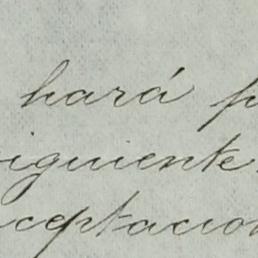 hará p
siguiente
ceptacion